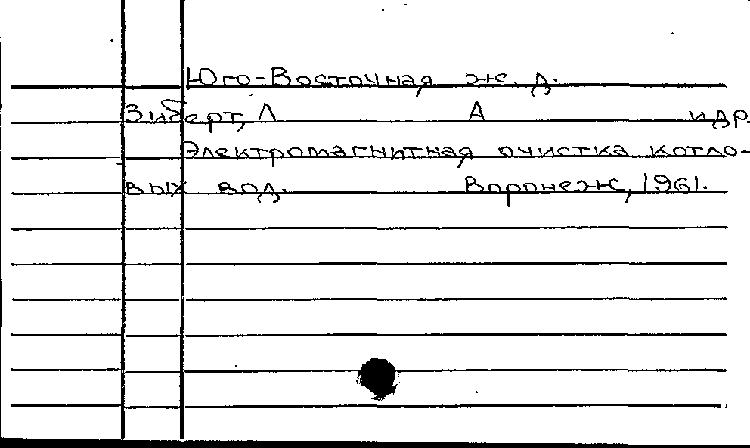 Юго-Восточная ж. д.
Зиберт, Л А и др.
Электромагнитная очистка котло-
вых вод. Воронеж, 1961.